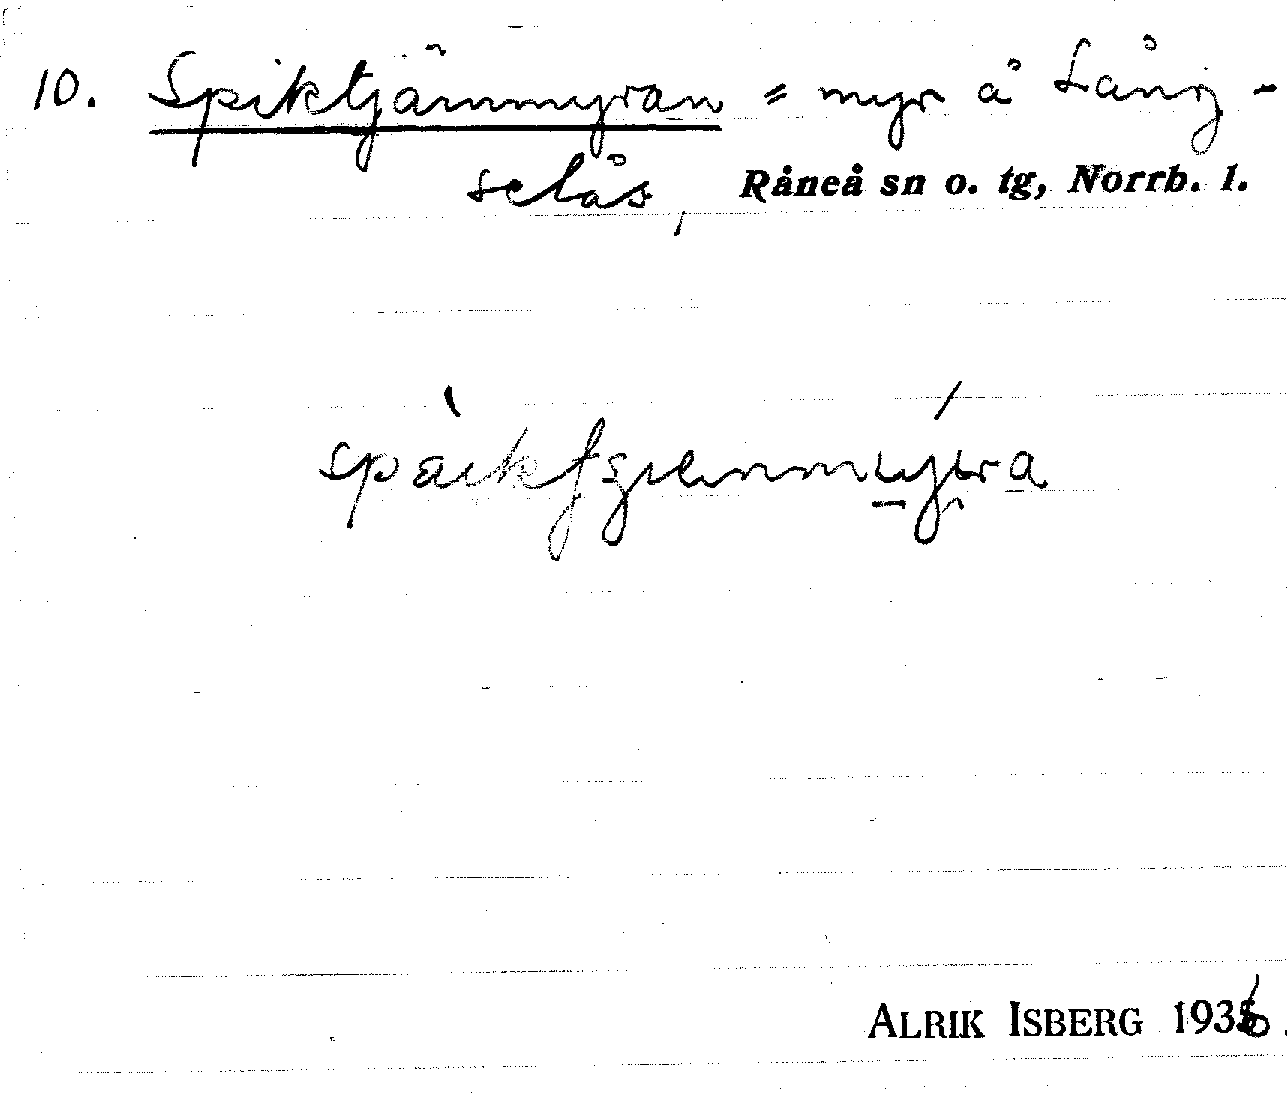 10. Spiktjärnmyran = myr å Lång-
selås, Råneå sn o. tg, Norrb. l.
ALRIK ISBERG 1936.